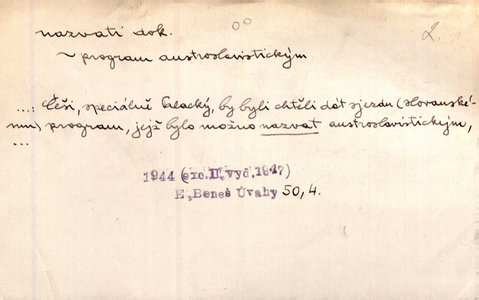 nazvati dok.
2.
~ program austroslavistickým
...: Češi, speciálně Palacký, by byli chtěli dát sjezdu (slovanské-
mu) program, jejž bylo možno nazvat austroslavistickým,
...
1944 (exc.II.vyd.1947)
E.Beneš Úvahy 50,4.